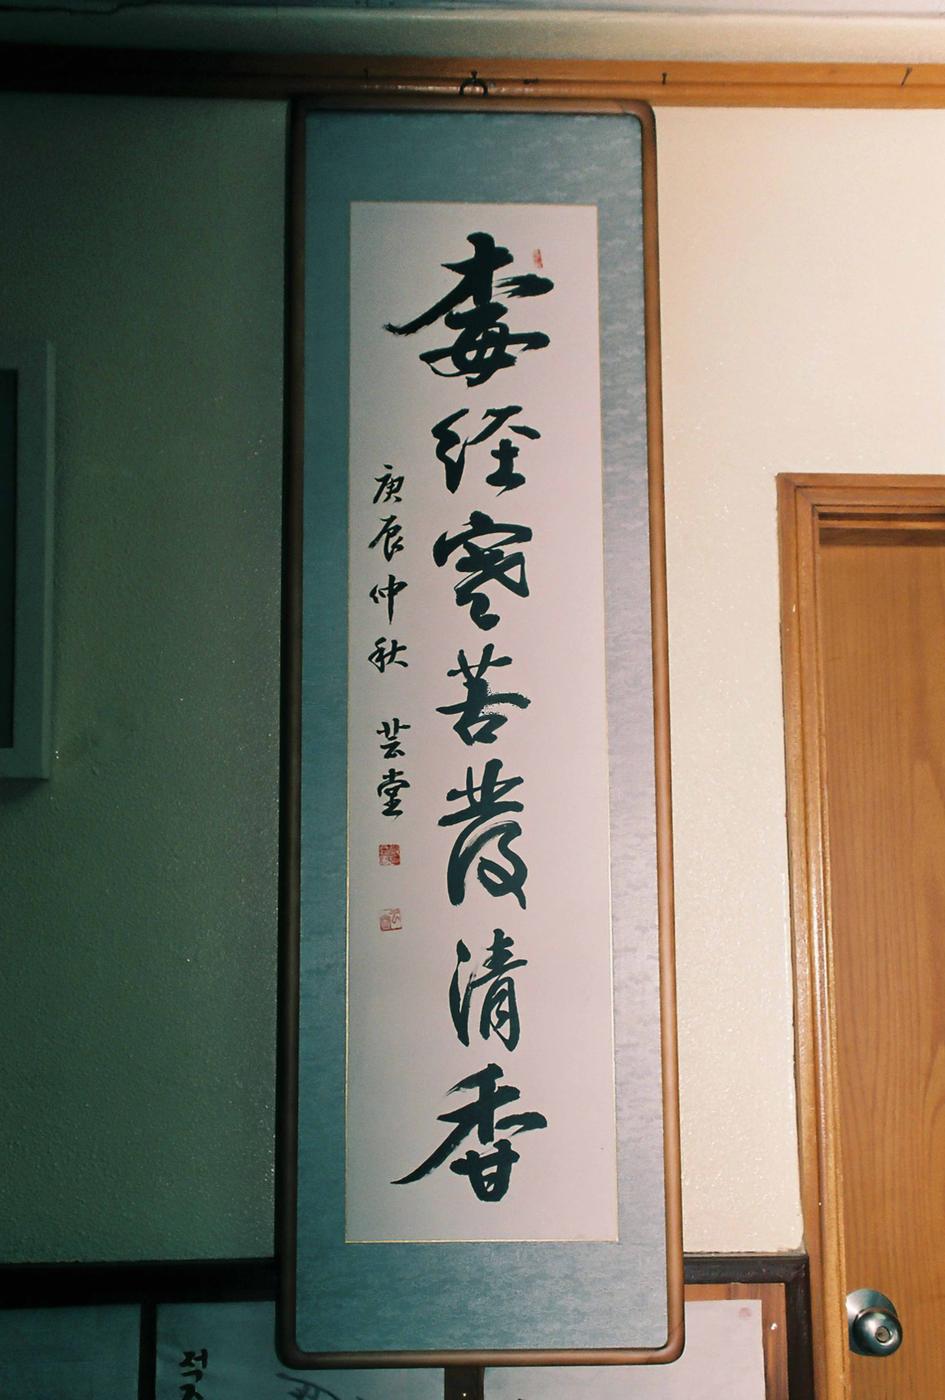 梅経寒苦發清香
庚辰仲秋 芸堂
적